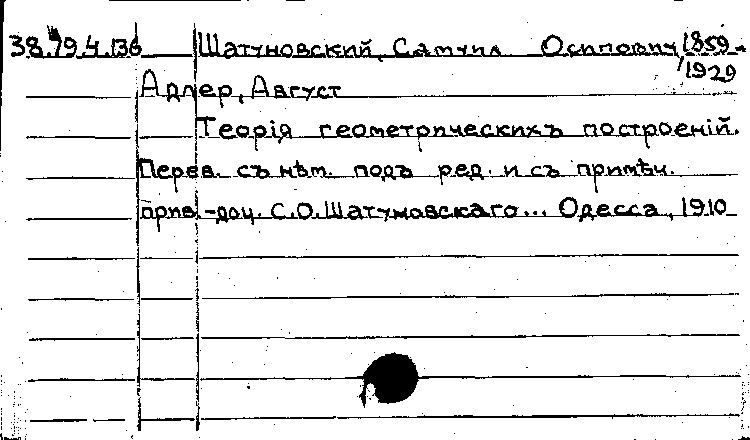 38.79.4.136 Шатуновский, Самуил Осипович, 1859-
1929
Адлер, Август
Теорія геометрическихъ построеній.
Перев. съ нѣм. подъ ред. и съ примѣч.
прив.-доц. С.О.Шатуновскаго... Одесса, 1910